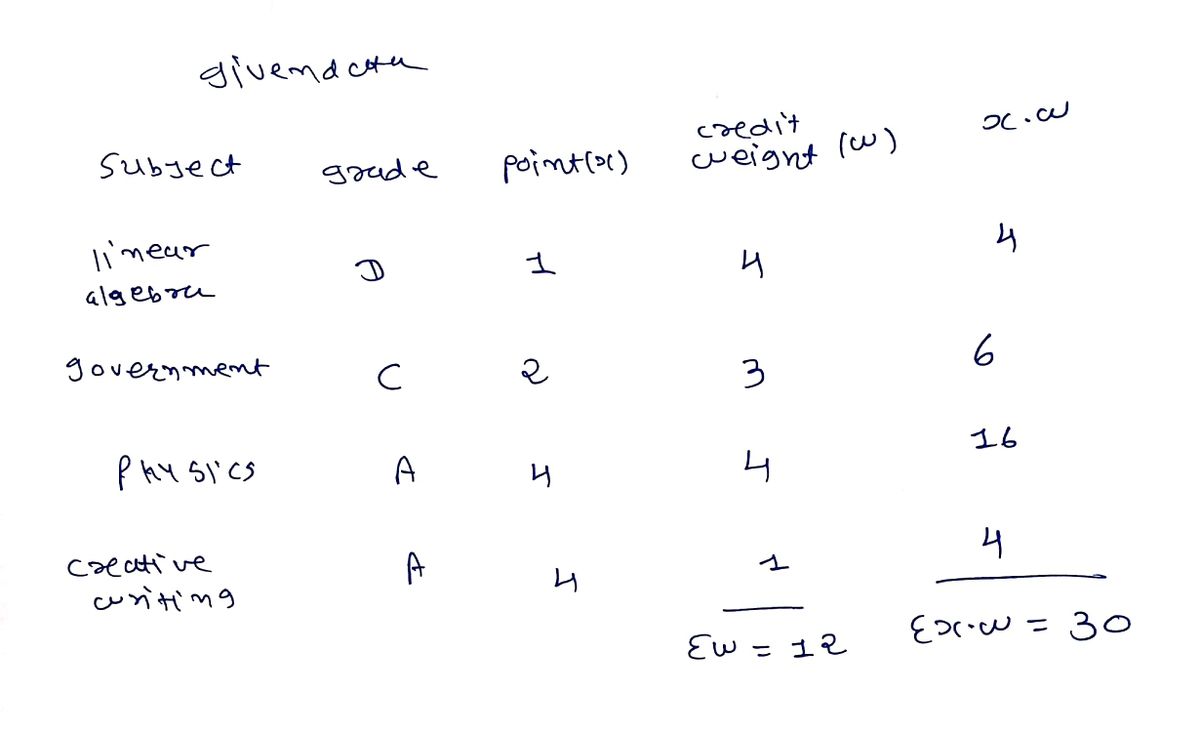 given data
Subject grade point(x) credit weight (w) x.w
linear algebra D 1 4 4
government C 2 3 6
Physics A 4 4 16
creative writing A 4 1 4
Σw = 12 Σx.w = 30